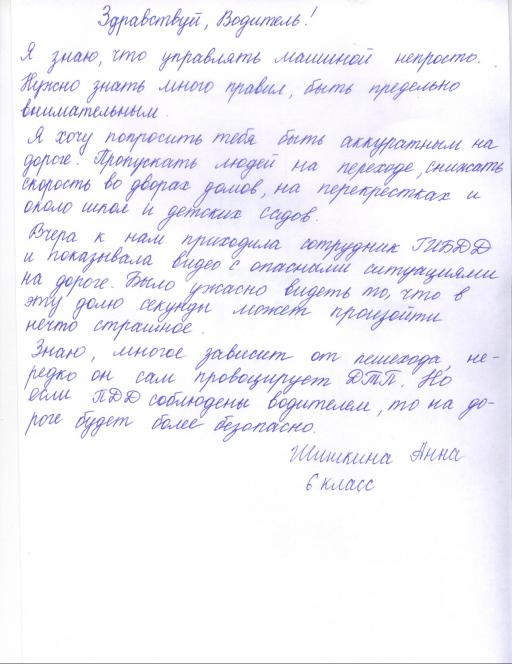 Здравствуй, Водитель!
Я знаю, что управлять машиной непросто.
Нужно знать много правил, быть предельно
внимательным.
Я хочу попросить тебя быть аккуратным на
дороге. Пропускать людей на переходе, снижать
скорость во дворах домов, на перекрестках и
около школ и детских садов.
Вчера к нам приходила сотрудник ГИБДД
и показывала видео с опасными ситуациями
на дороге. Было ужасно видеть то, что в
эту долю секунды может произойти
нечто страшное.
Знаю, многое зависит от пешехода, не-
редко он сам провоцирует ДТП. Но
если ПДД соблюдены водителем, то на до-
роге будет более безопасно.
Шишкина Анна
6 класс